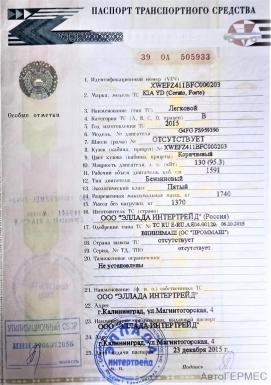 ПАСПОРТ ТРАНСПОРТНОГО СРЕДСТВА
39 ОА 505933
Особые отметки
1. Идентификационный номер (VIN)
XWEFZ411BFC000203
2. Марка, модель ТС KIA YD (Cerato, Forte)
3. Наименование (тип ТС) Легковой
4. Категория ТС (A, B, C, D, прицеп) B
5. Год изготовления ТС 2015
6. Модель, № двигателя G4FG FS959390
7. Шасси (рама) № ОТСУТСТВУЕТ
8. Кузов (кабина, прицеп) № XWEFZ411BFC000203
9. Цвет кузова (кабины, прицепа) Коричневый
10. Мощность двигателя, л. с. (кВт) 130 (95.3)
11. Рабочий объем двигателя, куб. см 1591
12. Тип двигателя Бензиновый
13. Экологический класс Пятый
14. Разрешенная максимальная масса, кг 1740
15. Масса без нагрузки, кг 1370
16. Изготовитель ТС (страна)
ООО "ЭЛЛАДА ИНТЕРТРЕЙД" (Россия)
17. Одобрение типа ТС №
18. Страна вывоза ТС отсутствует
19. Серия, № ТД, ТПО отсутствует
20. Таможенные ограничения
Не установлены
21. Наименование (ф. и. о.) собственника ТС
ООО "ЭЛЛАДА ИНТЕРТРЕЙД"
22. Адрес
г.Калининград, ул.Магнитогорская, 4
23. Наименование организации, выдавшей паспорт
ООО "ЭЛЛАДА ИНТЕРТРЕЙД"
24. Адрес
г.Калининград, ул.Магнитогорская, 4
25. Дата выдачи паспорта 23 декабря 2015 г.
М. П. Подпись
УТИЛИЗАЦИОННЫЙ СБОР
Интертрейд
АвтоГЕРМЕС